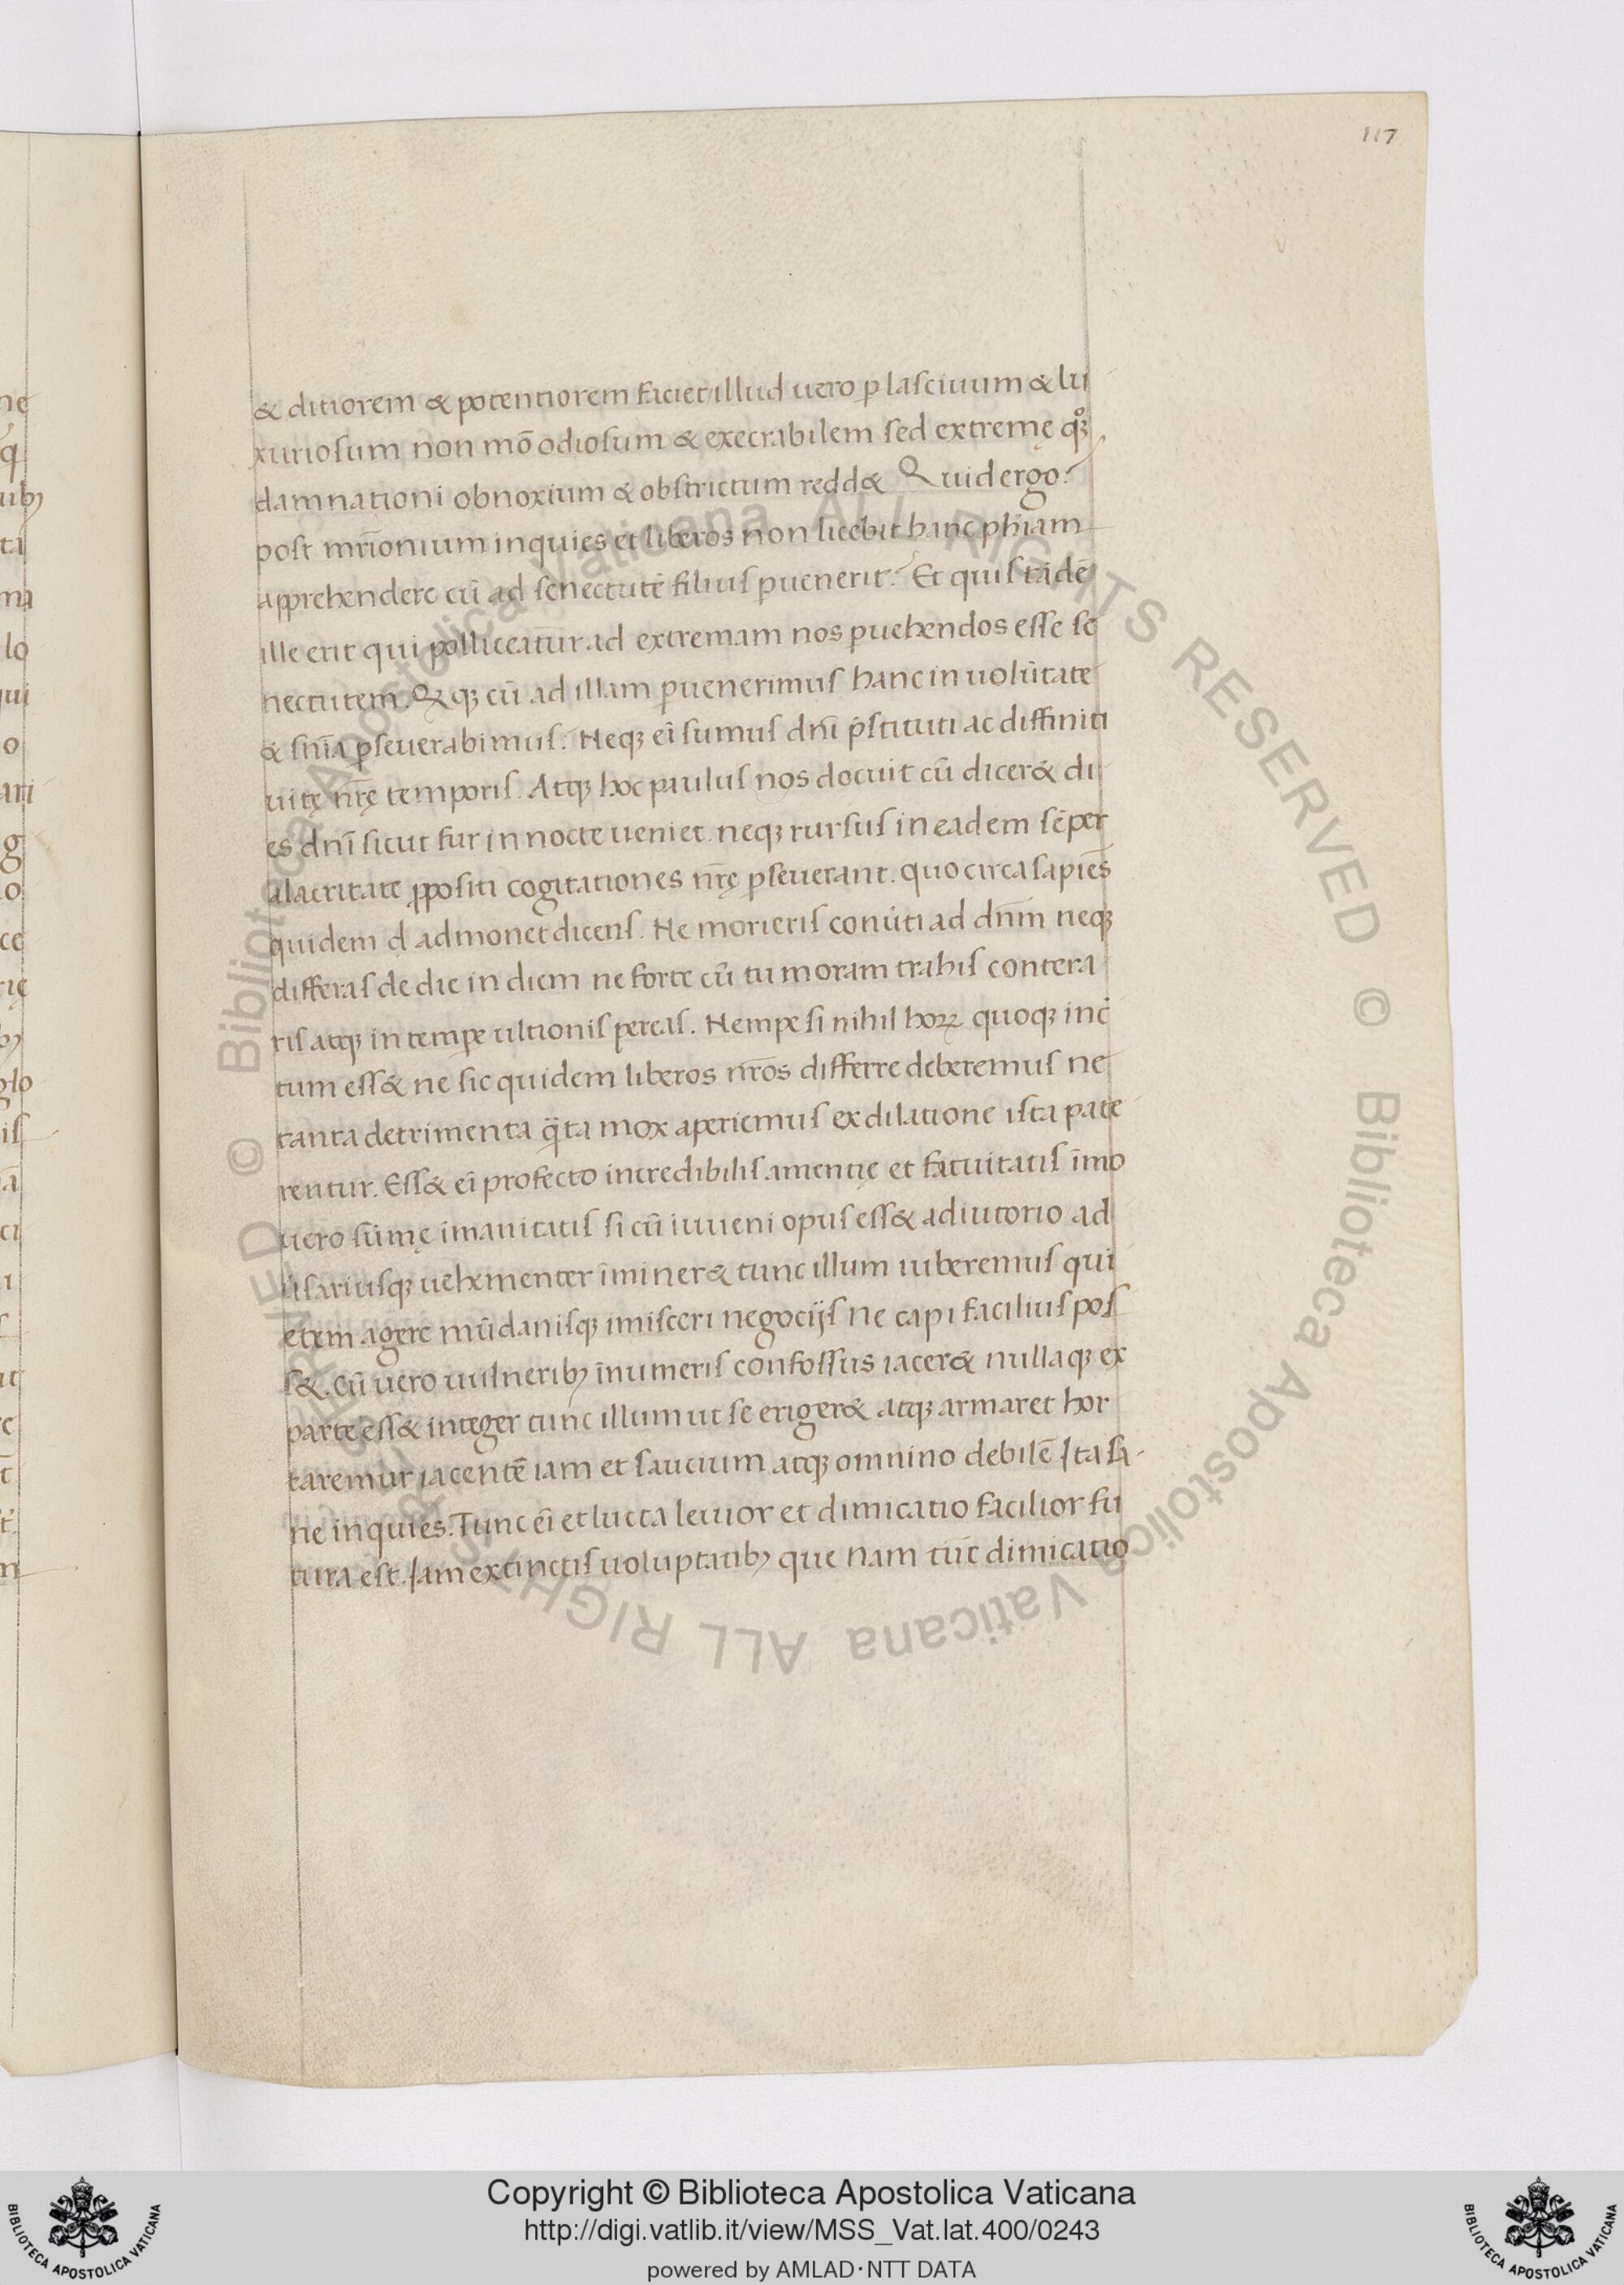 117
& ditiorem & potentiorem faciet illud uero p̱ lasciuum & lu
xuriosum non mō odiosum & execrabilem sed extremę qꝫ
damnationi obnoxium & obstrictum redd& Quid ergo?
post mr̄ionium inquies et liberos non licebit hanc ph̄iam
apprehendere cū ad senectutē filius ꝑuenerit? Et quis tādē
ille erit qui polliceatur ad extremam nos ꝑuehendos esse se
nectutem. cū ad illam ꝑuenerimus hanc in uolūtate
& sn̄ia ꝑseuerabimus. Neqꝫ ei sumus dn̄i p̄stituti ac diffiniti
uitę nr̄ę temporis. Atqꝫ hoc paulus nos docuit cū dicer& di
es dn̄i sicut fur in nocte ueniet. neqꝫ rursus in eadem sēper
alacritate ꝓpositi cogitationes nr̄ę ꝑseuerant. quocirca sapiēs
quidem admonet dicens. Ne morieris conūti ad dn̄m neqꝫ
differas de die in diem ne forte cū tu moram trahis contera
ris atqꝫ in tempe ultionis pereas. Nempe si nihil hoꝝ quoqꝫ inc̄
tum ess& ne sic quidem liberos nr̄os differre deberemus ne
tanta detrimenta q̄ta mox aperiemus ex dilatione ista pate
rentur. Ess& ei profecto incredibilis amentię et fatuitatis īmo
uero sūmę imanitatis si cū iuueni opus ess& adiutorio ad
uisariusqꝫ uehementer īminer& tunc illum iuberemus qui
etem agere mūdanisqꝫ imisceri negocijs ne capi facilius pos
s&. Cū uero uulneribꝫ īnumeris confossus iacer& nullaqꝫ ex
parte ess& integer tunc illum ut se eriger& atqꝫ armaret hor
taremur iacentē iam et saucium atqꝫ omnino debilē Ita sa
ne inquies. Tunc ei et lucta leuior et dimicatio facilior fu
tura est. Iam extinctis uoluptatibꝫ que nam tūc dimicatio
Copyright © Biblioteca Apostolica Vaticana
http://digi.vatlib.it/view/MSS_Vat.lat.400/0243
powered by AMLAD·NTT DATA